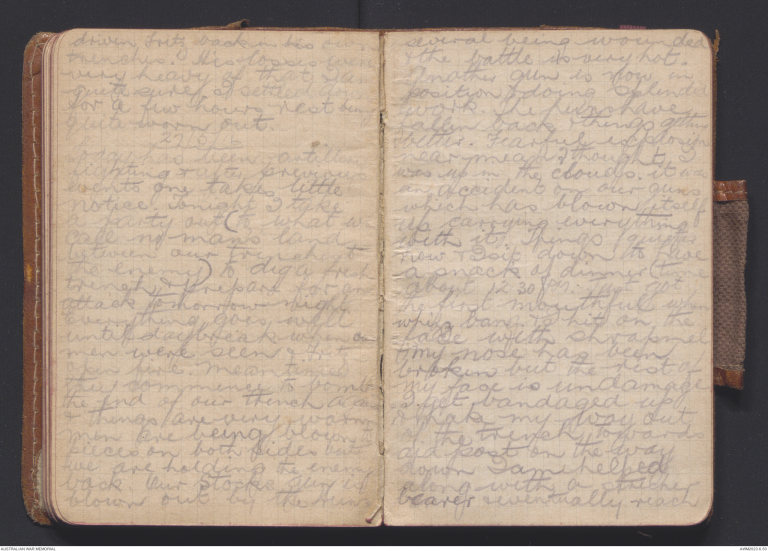 driven Fritz back in his own
trenches. His losses were
very heavy of that I am
quite sure. I settled down
for a few hours rest being
quite worn out.
22/5/15
today has been artillery
fighting & after previous
events one takes little
notice. Tonight I take
a party out (to what we
call no mans land
between our trench & t
the enemy) to dig a fresh
trench & prepare for an
attack tomorrow night
everything goes well
until daybreak when our
men were seen & Fritz
open fire. Meantime
they commence to bomb
the end of our trench
& things are very warm
men are being blown to
pieces on both sides but
we are holding the enemy
back Our Stokes gun is
blown out by the Huns
several being wounded
& the battle is very hot.
Another gun is now in
position & doing splendid
work. The huns have
fallen back & things getting
better. Fearful explosion
near me and I thought I
was up in the clouds. it was
an accident on our guns
which has blown itself
up carrying everything
with it. Things quieter
now & I sit down to have
a snack of dinner (time
about 12.30 pm. Just got
the first mouthfull when
whizz bang & hit on the
face with shrapnel
my nose has been
broken but the rest of
my face is undamaged
I get bandaged up
& make my way out
of the trench towards
aid post on the way
down I am helped
along with a stretcher
bearer & eventually reach
AUSTRALIAN WAR MEMORIAL